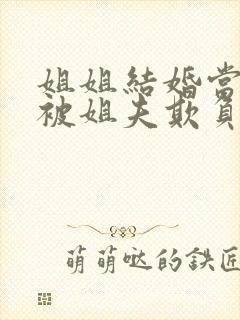 姐姐結婚當
被姐夫欺負
萌萌哒的鉄匠